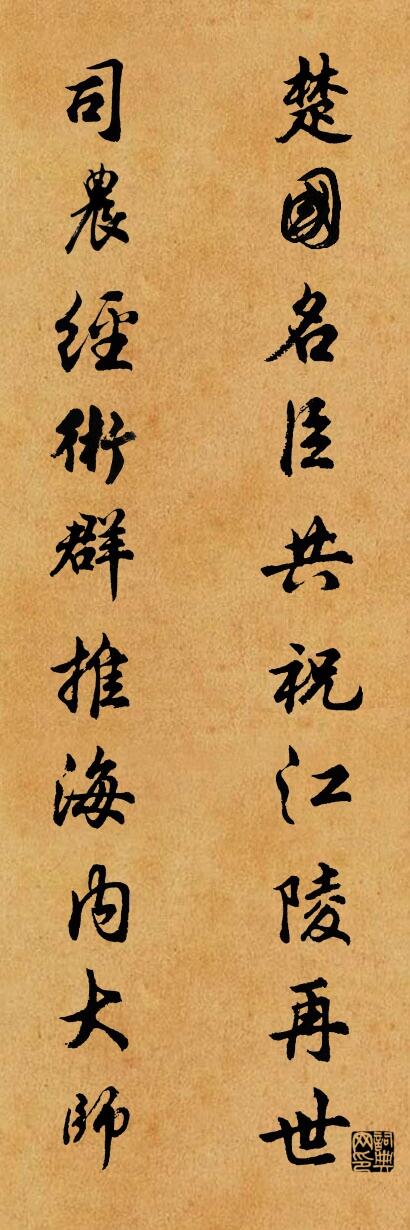 楚國名臣共祝江陵再世
司農經術群推海内大師
詞典網印